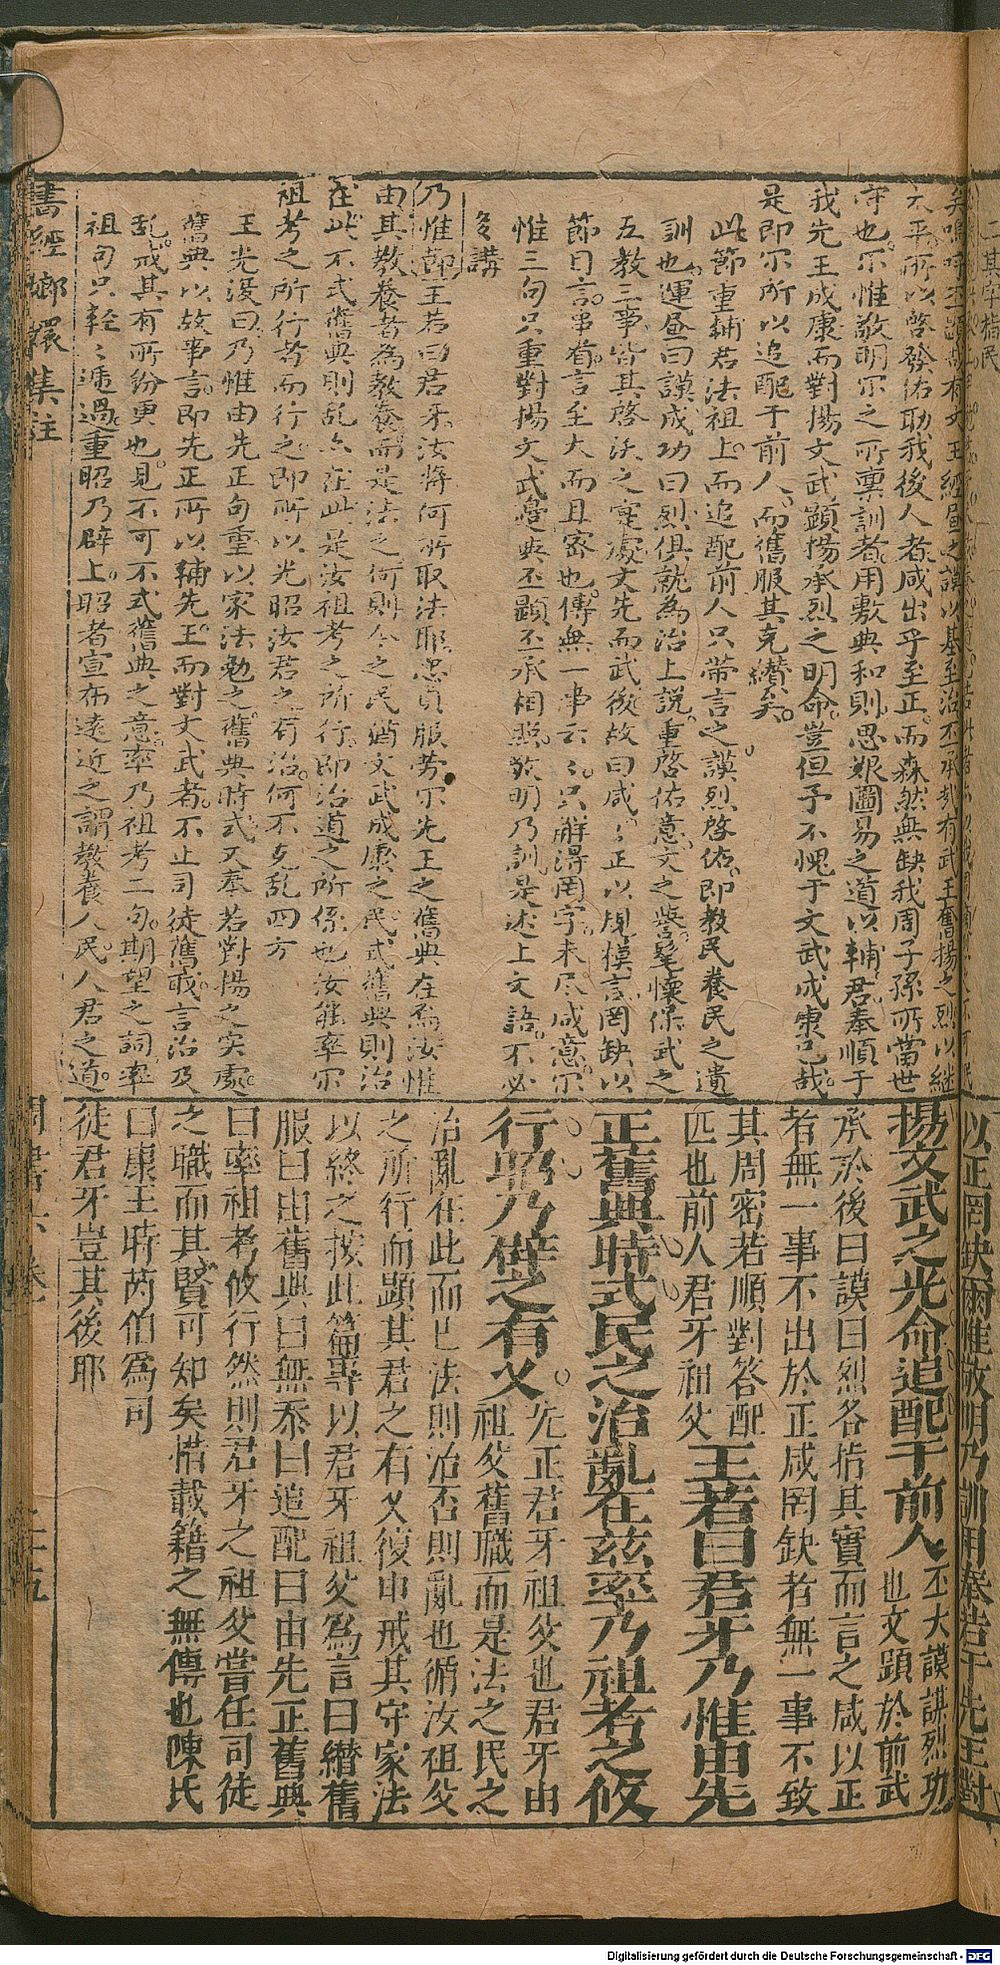 矣嗚呼丕顯哉有文王經畧之謨以基至治丕承哉有武王奮揚之烈以継
太平所以啓發佑助我後人者咸出乎至正而森然無缺我周子孫所當世
守也尔惟敬明尔之所禀訓者用敷典和則思艱圖易之道以輔君奉順于
我先王成康而對揚文武顕揚承烈之明命豈但予不愧于文武成康已哉
是即尔所以追配于前人而舊服其克纘矣
此節重輔君法祖上而追配前人只帶言之謨烈啓佑即教民養民之遺
訓也運畧曰謨成功曰烈俱就為治上說重啓佑意文之譽髦懷保武之
五教三事皆其啓沃之寔處文先而武後故曰咸咸正以規模言罔缺以
節目言串看言至大而且密也傳無一事云云只解得罔字未尽咸意尔
惟三句只重對揚文武意與丕顕丕承相照敬明乃訓是述上文語不必
多講
乃惟節王若曰君牙汝將何所取法耶忠貞服勞尔先王之舊典在焉汝惟
由其教養者為教養而是法之何則今之民猶文武成康之民式舊典則治
在此不式舊典則乱亦在此是汝祖考之所行即治道之所係也汝能率尔
祖考之所行者而行之即所以光昭汝君之有治何不克乱四方
王光漫曰乃惟由先正句重以家法勉之舊典時式又奉若對揚之实處
舊典以故事言即先正所以輔先王而對文武者不止司徒舊職言治及
乱戒其有所紛更也見不可不式舊典之意率乃祖考二句期望之詞率
祖句只軽軽逓過重昭乃辟上昭者宣布遠近之謂教養人民人君之道
揚文武之光命追配于前人丕大謨謀烈功也文顕於前武
承於後曰謨曰烈各指其實而言之咸以正
者無一事不出於正咸罔缺者無一事不致
其周密若順對答配
匹也前人君牙祖父王若曰君牙乃惟由先
正舊典時式民之治亂在茲率乃祖考之攸
行昭乃辟之有乂先正君牙祖父也君牙由祖父舊職而是法之民之
治亂在此而已法則治否則亂也循汝祖父
之所行而顕其君之有乂復申戒其守家法
以終之按此篇專以君牙祖父為言曰纘舊
服曰由舊典曰無忝曰追配曰由先正舊典
曰率祖考攸行然則君牙之祖父嘗任司徒
之職而其賢可知矣惜載籍之無傳也陳氏
曰康王時芮伯為司
徒君牙豈其後耶
書經嫏嬛集註
周書
Digitalisierung gefördert durch die Deutsche Forschungsgemeinschaft - DFG